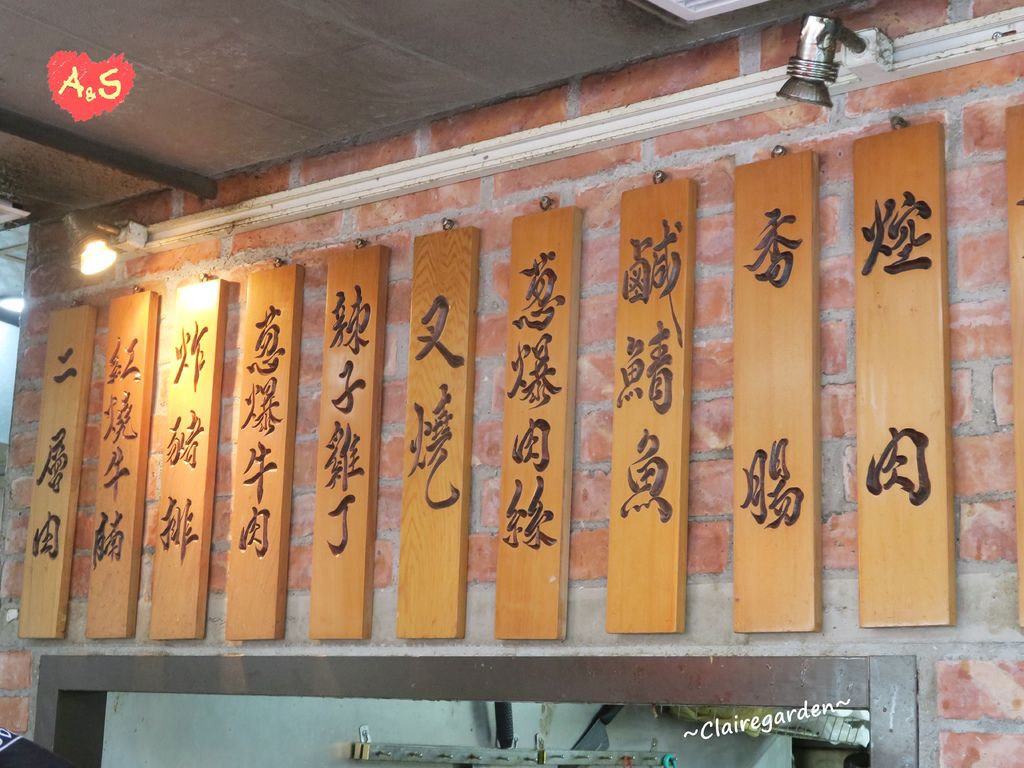 A&S
焢肉
香腸
鹹鯖魚
蔥爆肉絲
叉燒
辣子雞丁
蔥爆牛肉
炸豬排
紅燒牛腩
二層肉
~Clairegarden~